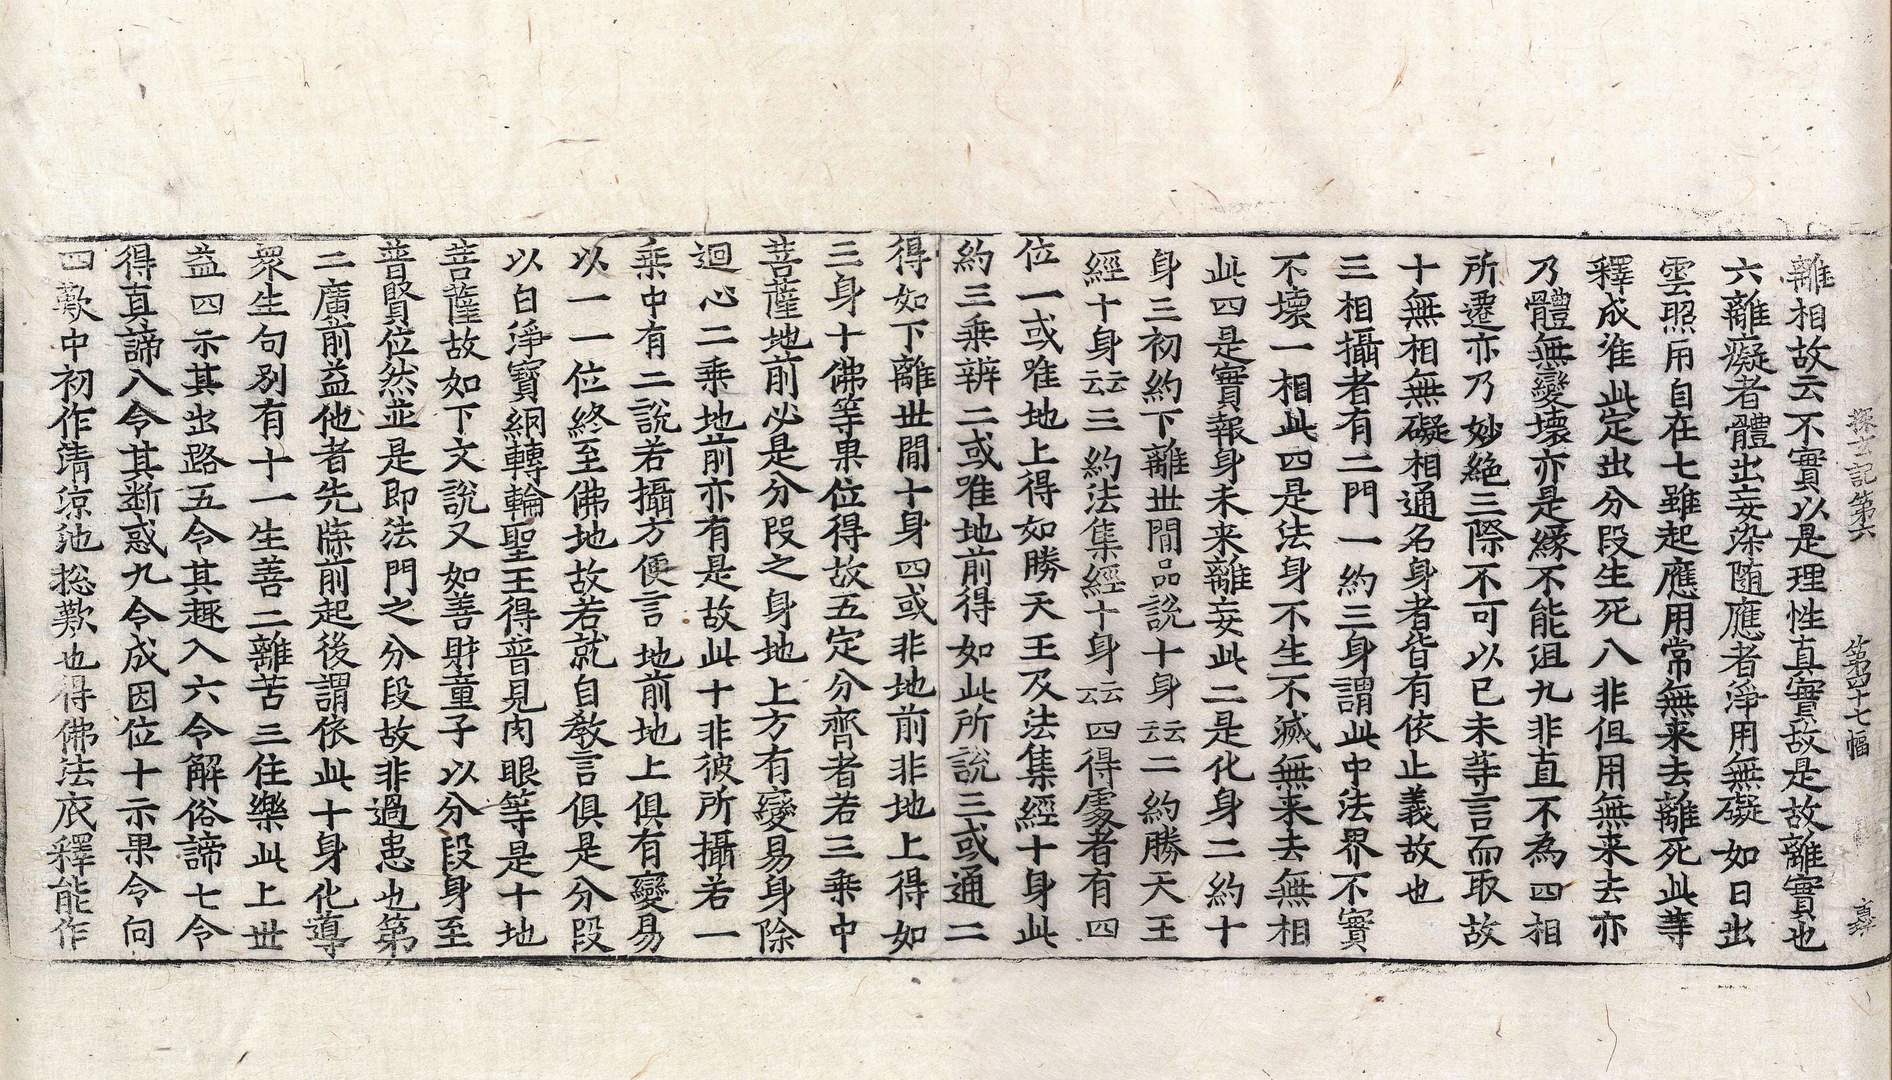 探玄記第六　第四十七幅
離相故云不實以是理性真實故是故離實也
六離癡者體出妄染隨應者淨用無礙如日出
雲照用自在七雖起應用常無来去離死此等
釋成准此定出分段生死八非但用無来去亦
乃體無變壞亦是緣不能沮九非直不為四相
所遷亦乃妙絶三際不可以已未等言而取故
十無相無礙相通名身者皆有依止義故也
三相攝者有二門一約三身謂此中法界不實
不壞一相此四是法身不生不滅無来去無相
此四是實報身未来離妄此二是化身二約十
身三初約下離世間品說十身云云二約勝天王
經十身云云三約法集經十身云云四得處者有四
位一或唯地上得如勝天王及法集經十身此
約三乗辨二或唯地前得如此所說三或通二
得如下離世間十身四或非地前非地上得如
三身十佛等果位得故五定分齊者若三乗中
菩薩地前必是分段之身地上方有變易身除
迴心二乗地前亦有是故此十非彼所攝若一
乗中有二說若攝方便言地前地上俱有變易
以一一位終至佛地故若就自教言俱是分段
以白淨寶網轉輪聖王得普見肉眼等是十地
菩薩故如下文說又如善財童子以分段身至
普賢位然並是即法門之分段故非過患也第
二廣前益他者先牒前起後謂依此十身化導
衆生句別有十一生善二離苦三住樂此上世
益四示其出路五令其趣入六令解俗諦七令
得真諦八令其断惑九令成因位十示果令向
四歎中初作清涼池捴歎也得佛法底釋能作